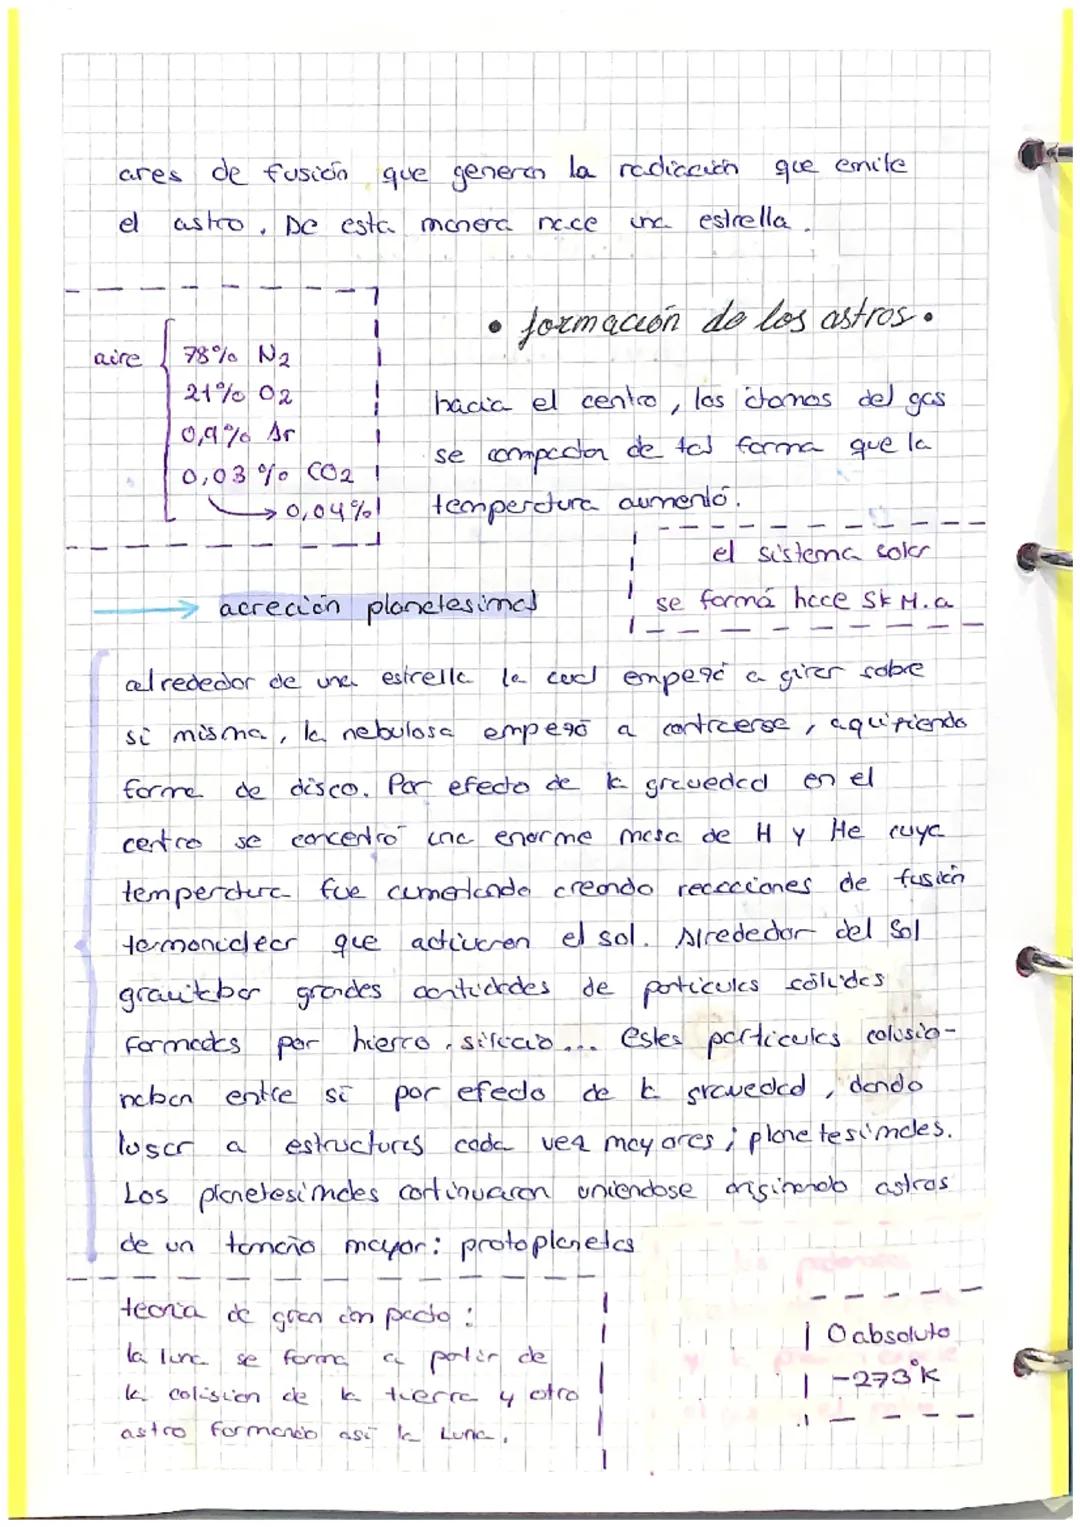 ares de fusión que generan la radiación que emite
el astro. De esta manera nace una estrella.
aire
78% N2
21% O2
0,9% Ar
0,03% CO2
→ 0,04%
• formación de los astros •
hacia el centro, los átomos del gas
se compactan de tal forma que la
temperatura aumentó.
el sistema solar
se formá hace 5k M.a
→ acreción planetesimal
alrededor de una estrella la cual empezó a girar sobre
si misma, la nebulosa empezó a contraerse, aquiriendo
forma de disco. Por efecto de la gravedad en el
centro se concentró una enorme masa de H y He cuya
temperatura fue aumentando creando reacciones de fusión
termonuclear que activaron el sol. Alrededor del Sol
gravitaban grandes cantidades de particulas sólidas
formadas por hierro, silicio... Estas particulas colisio-
naban entre sí por efecto de la gravedad, dando
lugar a estructuras cada vez mayores; planetesimales.
Los planetesimales continuaron uniendose originando astros
de un tamaño mayor: protoplanetas
teoria de gran impacto:
la luna se forma a partir de
la colision de la tierra y otro
astro formando así la Luna.
0 absoluto
-273°K